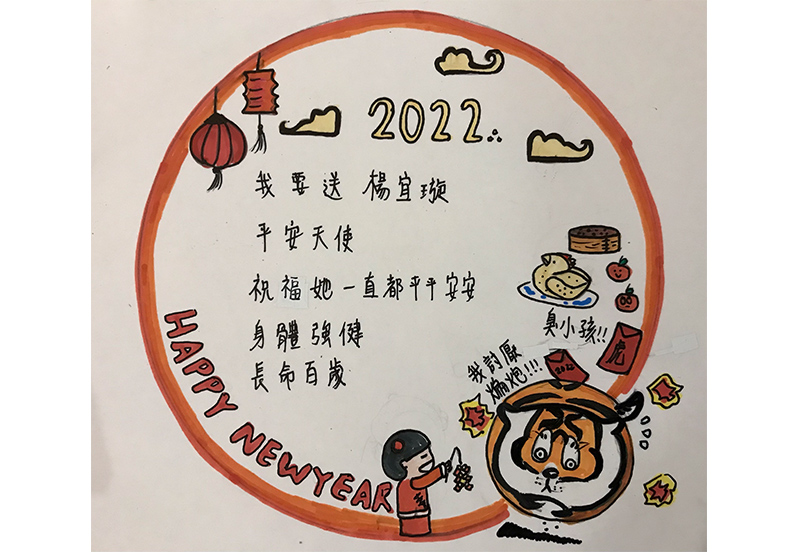 2022
我要送 楊宜璇
平安天使
祝福她一直都平平安安
身體強健
長命百歲
臭小孩!!
虎
2022
我討厭
鞭炮!!!
HAPPY NEW YEAR